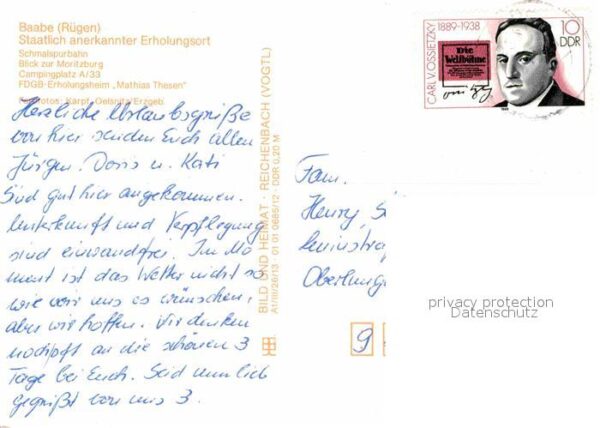 Baabe (Rügen)
Staatlich anerkannter Erholungsort
Schmalspurbahn
Blick zur Moritzburg
Campingplatz A/33
FDGB-Erholungsheim „Mathias Thesen"
Fotos: Karpf, Oelsnitz/Erzgeb.
Herzliche Urlaubsgrüße
von hier senden Euch allen
Jürgen, Doris u. Kati
Sind gut hier angekommen.
Unterkunft und Verpflegung
sind einwandfrei. Im Mo
ment ist das Wetter nicht so
wie wir uns es wünschen,
aber wir hoffen. Wir denken
noch oft an die schönen 3
Tage bei Euch. Seid nun lieb
gegrüßt von uns 3.
BILD UND HEIMAT · REICHENBACH (VOGTL)
A1/III/26/13 · 01 01 0685/12 · DDR 0,20 M
CARL V. OSSIETZKY 1889-1938
Die
Weltbühne
10
DDR
Fam.
Henry, S
Oberlung
9
privacy protection
Datenschutz